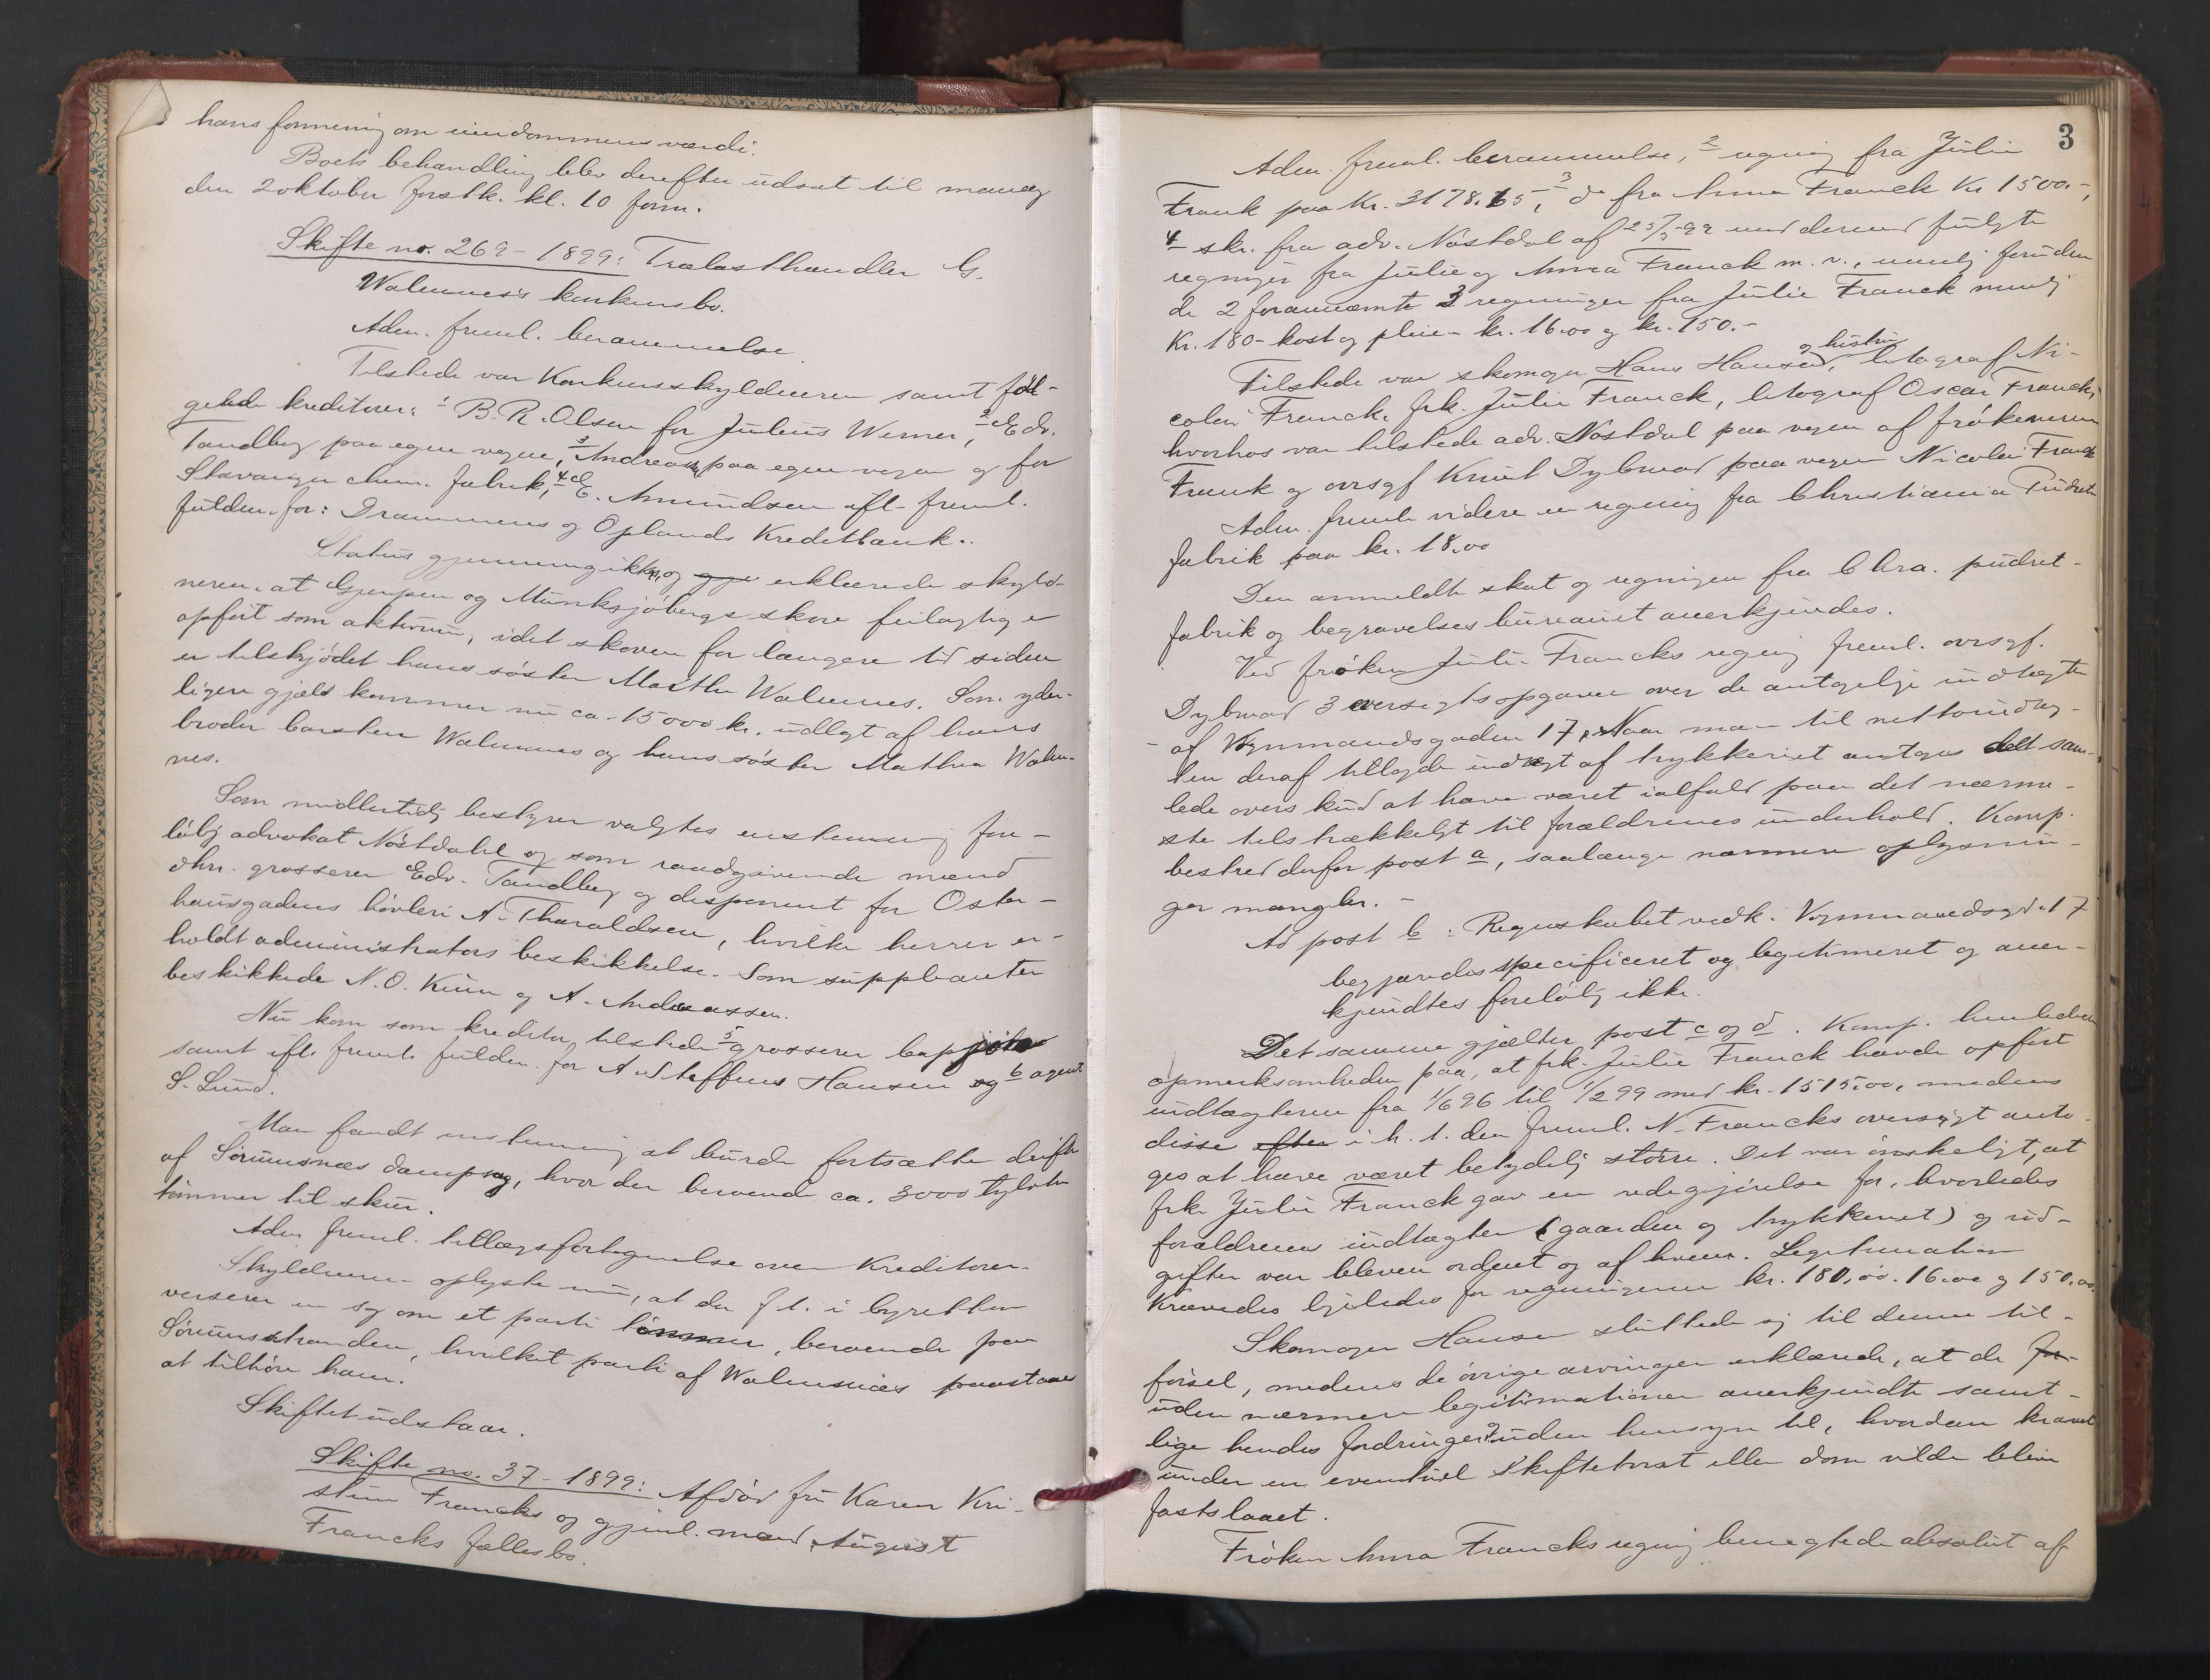 hans formening om eiendommens værdi.
Boets behandling blev derefter udsat til mandag
den 2 oktober førstk. kl. 10 form.
Skifte no. 269 - 1899: Trælasthandler G.
Walennes's konkursbo.
Adm. freml. berammelse.
Tilstede var Konkursskyldneren samt føl-
gende kreditorer: 1 B. R. Olsen for Julius Werner, 2 Edv.
Tandberg paa egne vegne, 3 Andreas paa egne vegne og for
Stavanger chem. fabrik, 4 E. Amundsen ifl. freml.
fuldm. for: Drammens og Oplands Kreditbank.
Status gjennemgikkes, og erklærede skyld-
neren, at Gjerpen og Munksjøbergs skove feilagtig er
opført som aktivum, idet skoven for længere tid siden
er tilskjødet hans søster Marthe Walennes. Som yder-
ligere gjæld kommer nu ca. 15000 kr. udlagt af hans
broder Carsten Walennes og hans søster Mathea Walen-
nes.
Som midlertidig bestyrer valgtes enstemmig fore-
løbig advokat Nøstdahl og som raadgivende mænd
dhrr. grosserer Edv. Tandberg og disponent for Oster-
hausgadens høvleri A. Tharaldsen, hvilke herrer er-
holdt administrators beskikkelse. Som suppleanter
beskikkede N. O. Kiun og A. Andreassen.
Nu kom som kreditor tilstede 5 grosserer
samt ifl. freml. fuldm. for A. Steffens Hansen og 6 agent
S. Lund.
Man fandt enstemmig at burde fortsætte driften
af Sørumsnæs dampsag, hvor der beroende ca. 3000 tylvter
tømmer til skur.
Adm. freml. tillægsfortegnelse over Kreditorer.
Skyldneren oplyste nu, at der f. t. i byretten
verserer en sag om et parti tømmer, beroende paa
Sørumsstranden, hvilket parti af Walennes paastaaes
at tilhøre ham.
Skiftet udstaar.
Skifte no. 37 - 1899: Afdød fru Karen Kri-
stine Francks og gjenl. mand August
Francks fællesbo.
3
Adm. freml. berammelse, 2 regning fra Julie
Franck paa Kr. 3178.65, 3 do fra Anna Franck Kr 1500.-,
4 skr. fra adv. Nøstdal af 23/5-99 med dermed fulgte
regninger fra Julie og Anna Franck m. v., nemlig foruden
de 2 forannævnte 3 regninger fra Julie Franck nemlig
Kr. 180.- kost og pleie kr. 16.00 og kr. 150.-
Tilstede var skomager Hans Hansen og hustru, litograf Ni-
colai Franck, frk. Julie Franck, litograf Oscar Franck,
hvorhos var tilstede adv. Nøstdal paa vegne af frøknerne
Franck og ovrsgf Knut Dybwad paa vegne Nicolai Franck
Adm. freml. videre en regning fra Christiania Pudret-
fabrik paa kr. 18.00
Den anmeldte skat og regningen fra Chra. pudret-
fabrik og begravelsesbureauet anerkjendes.
Ved frøken Julie Francks regning freml. ovrsgf.
Dybwad 3 oversigtsopgaver over de antagelige indtægter
af Vognmandsgaden 17. Naar man til nettoindtæg-
ten deraf tillagde indtægt af trykkeriet antages det sam-
lede overskud at have været ialfald paa det nærme-
ste tilstrækkeligt til forældrenes underhold. Komp.
bestred derfor post a, saalænge nærmere oplysnin-
ger mangler. -
Ad post b: Regnskabet vedk. Vognmandsgd. 17
begjæredes specificeret og legitimeret og aner-
kjendtes foreløbig ikke.
Det samme gjælder post c og d. Komp. henledede
opmerksomheden paa, at frk. Julie Franck havde opført
indtægterne fra 1/6 96 til 1/2 99 med kr. 1515.00, medens
disse efter i h. t. den freml. N. Francks oversigt anta-
ges at have været betydelig større. Det var ønskeligt, at
frk. Julie Franck gav en redegjørelse for, hvorledes
forældrenes indtægter (gaarden og trykkeriet) og ud-
gifter var bleven ordnet og af hvem. Legitimation
Krævedes ligeledes for regningerne kr. 180.00. 16.00 og 150.00.
Skomager Hansen sluttede sig til denne til-
førsel, medens de øvrige arvinger erklærede, at de for-
uden nærmere legitimationer anerkjendte samt-
lige hendes fordringer uden hensyn til, hvordan kravet
under en eventuel skiftetvist eller dom vilde blive
fastslaaet.
Frøken Anna Francks regning benegtede absolut af